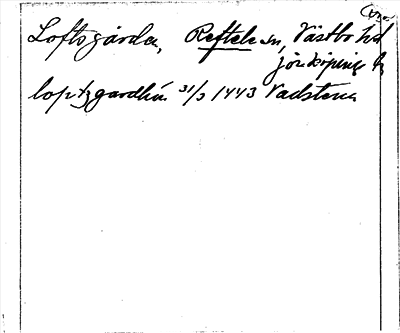 Loftsgården, Reftele sn, Västbo hd
Jönköpings l.
loptzgardhin 31/3 1443 Vadstena